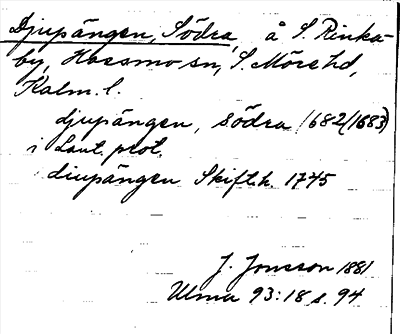 Djupängen, Södra, å S. Rinka-
by, Hossmo sn, S. Möre hd,
Kalm. l.
djupängen, södra 1682 (1683)
i Lant. prot.
diupängen Skift.h. 1745
J. Jonsson 1881
Ulma 93:18 s. 94